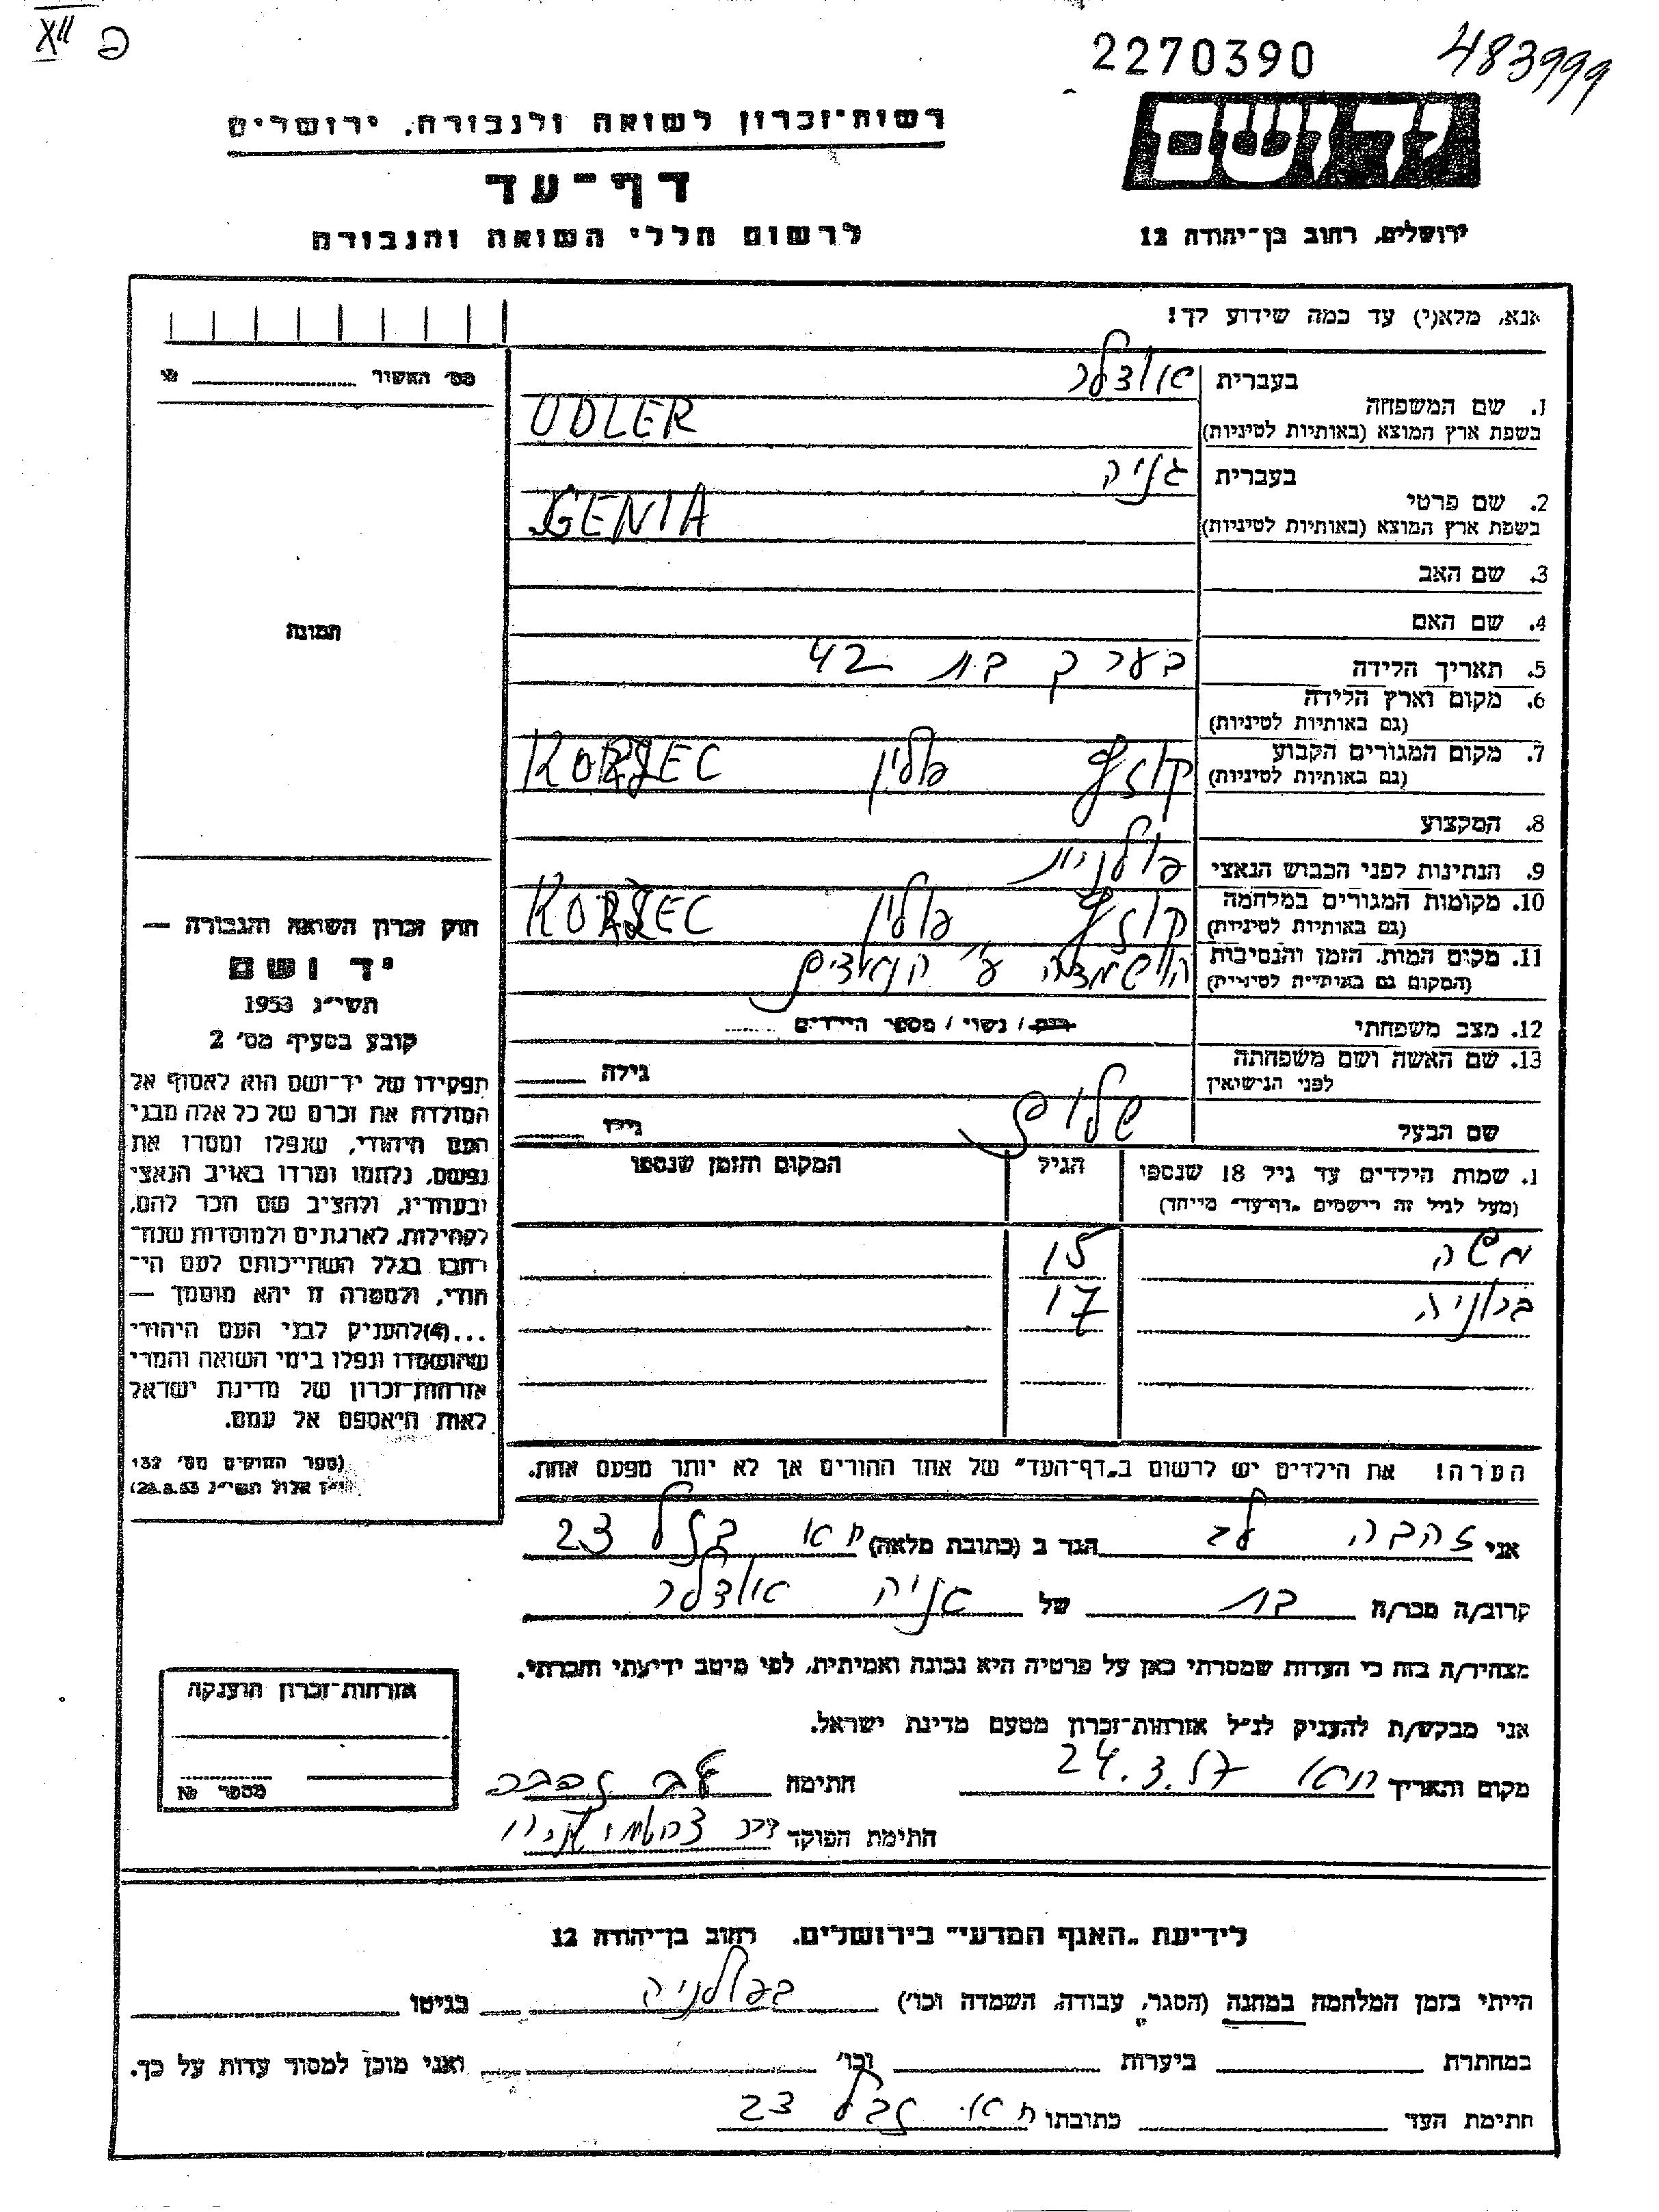 XII פ
2270390
483999
רשות־זכרון לשואה ולגבורה, ירושלים
יד ושם
דף־עד
לרשום חללי השואה והגבורה
ירושלים, רחוב בן־יהודה 12
אנא, מלא(י) עד כמה שידוע לך!
מס׳ האשור
בעברית אודלר
1. שם המשפחה
בשפת ארץ המוצא (באותיות לטיניות) UDLER
בעברית גניה
2. שם פרטי
בשפת ארץ המוצא (באותיות לטיניות) GENIA
3. שם האב
4. שם האם
תמונה
5. תאריך הלידה בערך בת 42
6. מקום וארץ הלידה
(גם באותיות לטיניות)
7. מקום המגורים הקבוע
(גם באותיות לטיניות) פולין KORZEC
8. המקצוע
9. הנתינות לפני הכבוש הנאצי פולנית
10. מקומות המגורים במלחמה
(גם באותיות לטיניות) פולין KORZEC
11. מקום המות, הזמן והנסיבות
(המקום גם באותיות לטיניות) הושמדה ע״י הנאצים
12. מצב משפחתי רווק / נשוי / מספר הילדים
13. שם האשה ושם משפחתה
לפני הנישואין גילה
שם הבעל שלום גילו
חוק זכרון השואה והגבורה —
יד ושם
תשי״ג 1953
קובע בסעיף מס׳ 2
תפקידו של יד־ושם הוא לאסוף אל
המולדת את זכרם של כל אלה מבני
העם היהודי, שנפלו ומסרו את
נפשם, נלחמו ומרדו באויב הנאצי
ובעוזריו, ולהציב שם וזכר להם,
לקהילות, לארגונים ולמוסדות שנח־
רבו בגלל השתייכותם לעם הי־
הודי, ולמטרה זו יהא מוסמך —
...(4) להעניק לבני העם היהודי
שהושמדו ונפלו בימי השואה והמרי
אזרחות־זכרון של מדינת ישראל
לאות היאספם אל עמם.
(ספר החוקים מס׳ 132
י״ז אלול תשי״ג 28.8.53)
1. שמות הילדים עד גיל 18 שנספו הגיל המקום והזמן שנספו
(מעל לגיל זה רישמים „דף־עד״ מייחד)
משה 15
ברוניה 17
הערה! את הילדים יש לרשום ב„דף־העד״ של אחד ההורים אך לא יותר מפעם אחת.
אני זהבה לב הגר ב (כתובת מלאה) 23
קרוב/ה מכר/ה בת של גניה אודלר
מצהיר/ה בזה כי העדות שמסרתי כאן על פרטיה היא נכונה ואמיתית, לפי מיטב ידיעתי והכרתי.
אזרחות־זכרון הוענקה
אני מבקש/ת להעניק לנ״ל אזרחות־זכרון מטעם מדינת ישראל.
מקום ותאריך 24.3.57 חתימה לב זהבה
מספר №
חתימת הפוקד
לידיעת „האגף המדעי״ בירושלים, רחוב בן־יהודה 12
הייתי בזמן המלחמה במחנה (הסגר, עבודה, השמדה וכו׳) בפולניה בגיטו
במחתרת ביערות וכו׳ ואני מוכן למסור עדות על כך.
חתימת העד כתובתו 23